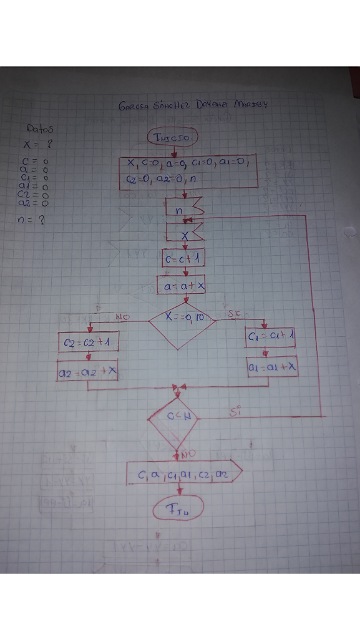 GARCIA SÁNCHEZ DAYANA
Datos
X = ?
c = 0
a = 0
c1 = 0
a1 = 0
c2 = 0
a2 = 0
n = ?
Inicio
X, c=0, a=0, c1=0, a1=0,
c2=0, a2=0, n
n
X
c=c+1
a=a+x
NO
SI
c2=c2+1
c1=c1+1
a2=a2+X
a1=a1+X
C<N
Si
NO
C, a, c1, a1, c2, a2
Fin